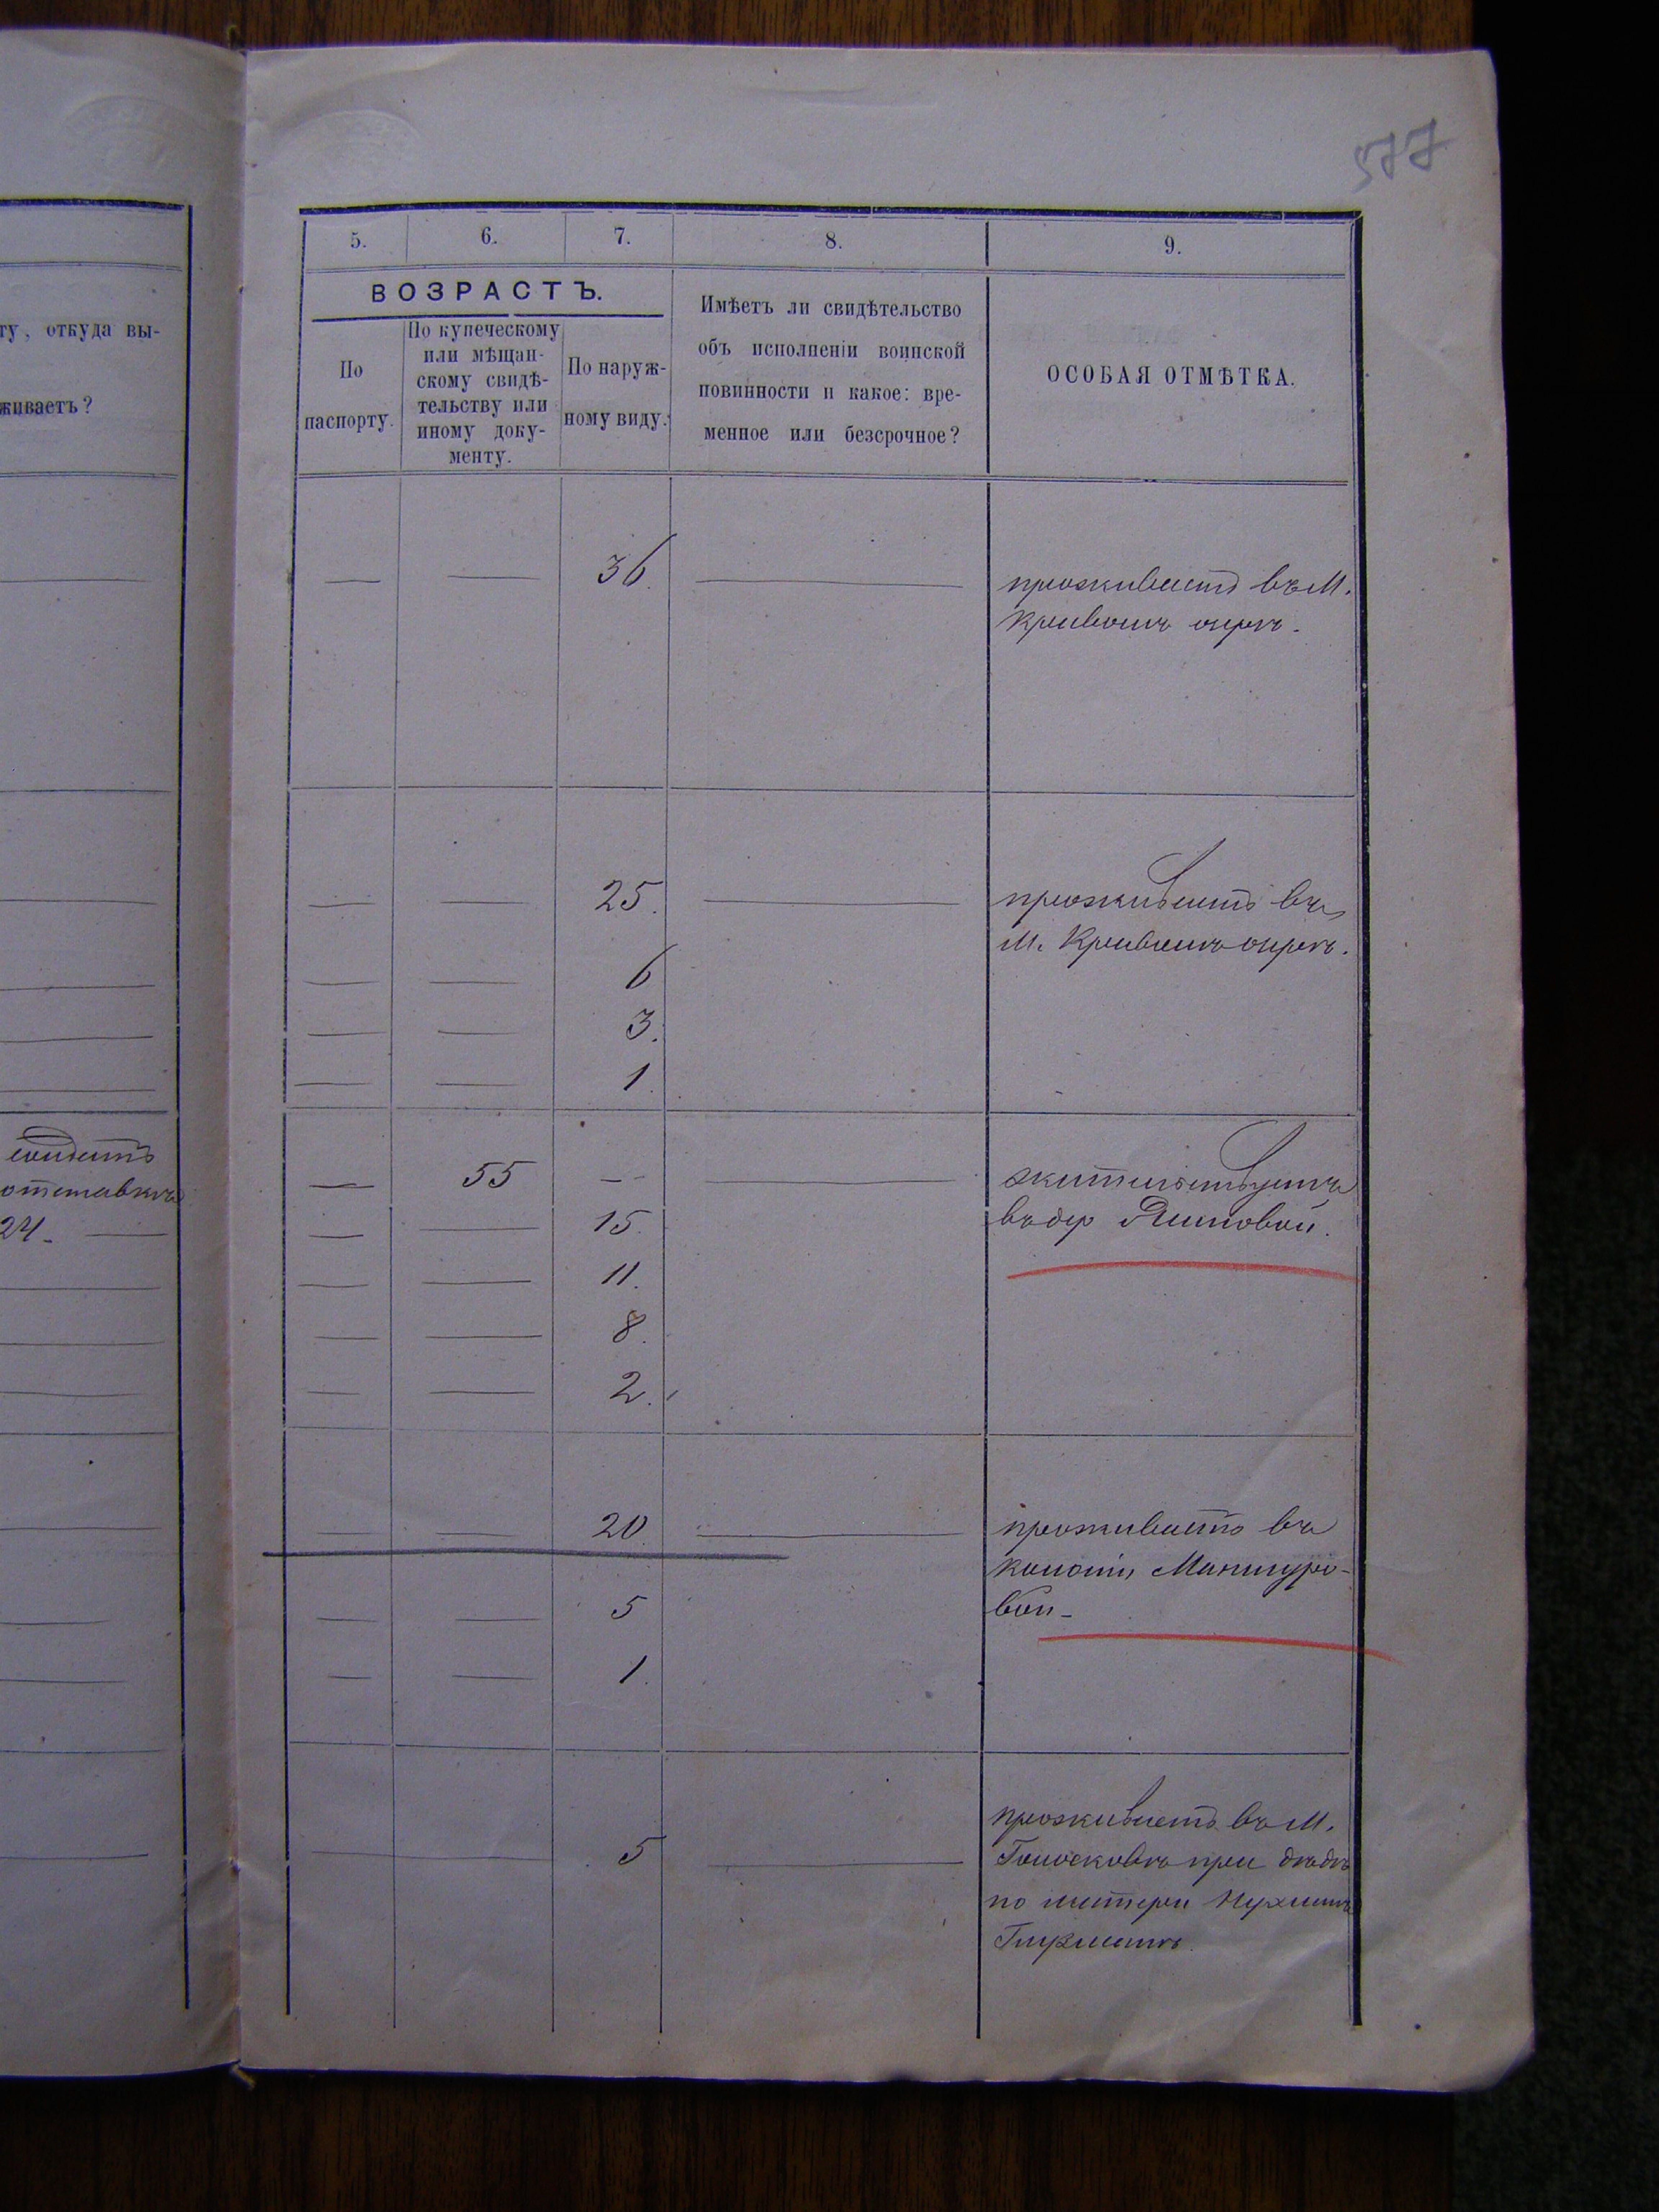 577
ту, откуда вы-
живаетъ?
отставкѣ
24.
5. 6. 7. 8. 9.
ВОЗРАСТЪ.
По
паспорту.
По купеческому
или мѣщан-
скому свидѣ-
тельству или
иному доку-
менту.
По наруж-
ному виду.
Имѣетъ ли свидѣтельство
объ исполненіи воинской
повинности и какое: вре-
менное или безсрочное?
ОСОБАЯ ОТМѢТКА.
— — 36. — проживаетъ въ М.
Кривомъ озерѣ.
— — 25. — проживаетъ въ
М. Кривомъ озерѣ.
— — 6
— — 3.
— — 1.
— 55 — — жительствуетъ
— — 15. въ дер
— — 11.
— — 8.
— — 2.
— 20. — проживаетъ въ
колоніи
— — 5 вой
— — 1.
проживаетъ въ М.
— — 5 — Голосковѣ при дѣдѣ
по матери